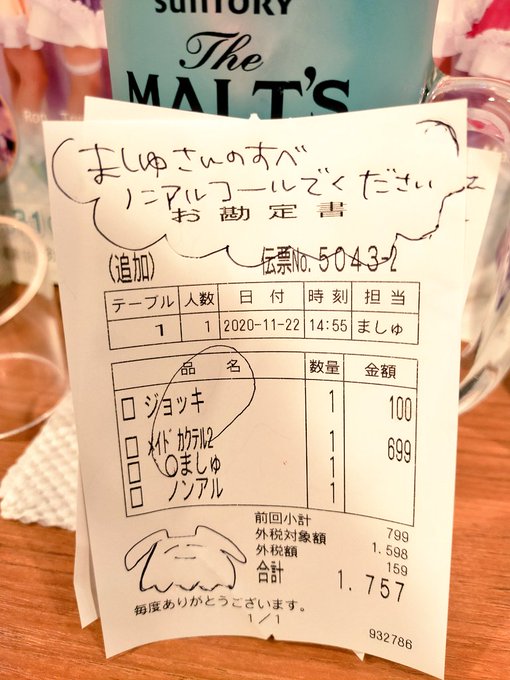 SUNTORY
The
MALT'S
ましゅさんのすべ
ノンアルコールでください
お勘定書
(追加)
伝票No. 5043-2
テーブル 人数 日付 時刻 担当
1 1 2020-11-22 14:55 ましゅ
品名 数量 金額
ジョッキ 1 100
メイドカクテル2 1 699
○ましゅ 1
ノンアル 1
前回小計 799
外税対象額 1,598
外税額 159
合計 1,757
毎度ありがとうございます。
1/1
932786